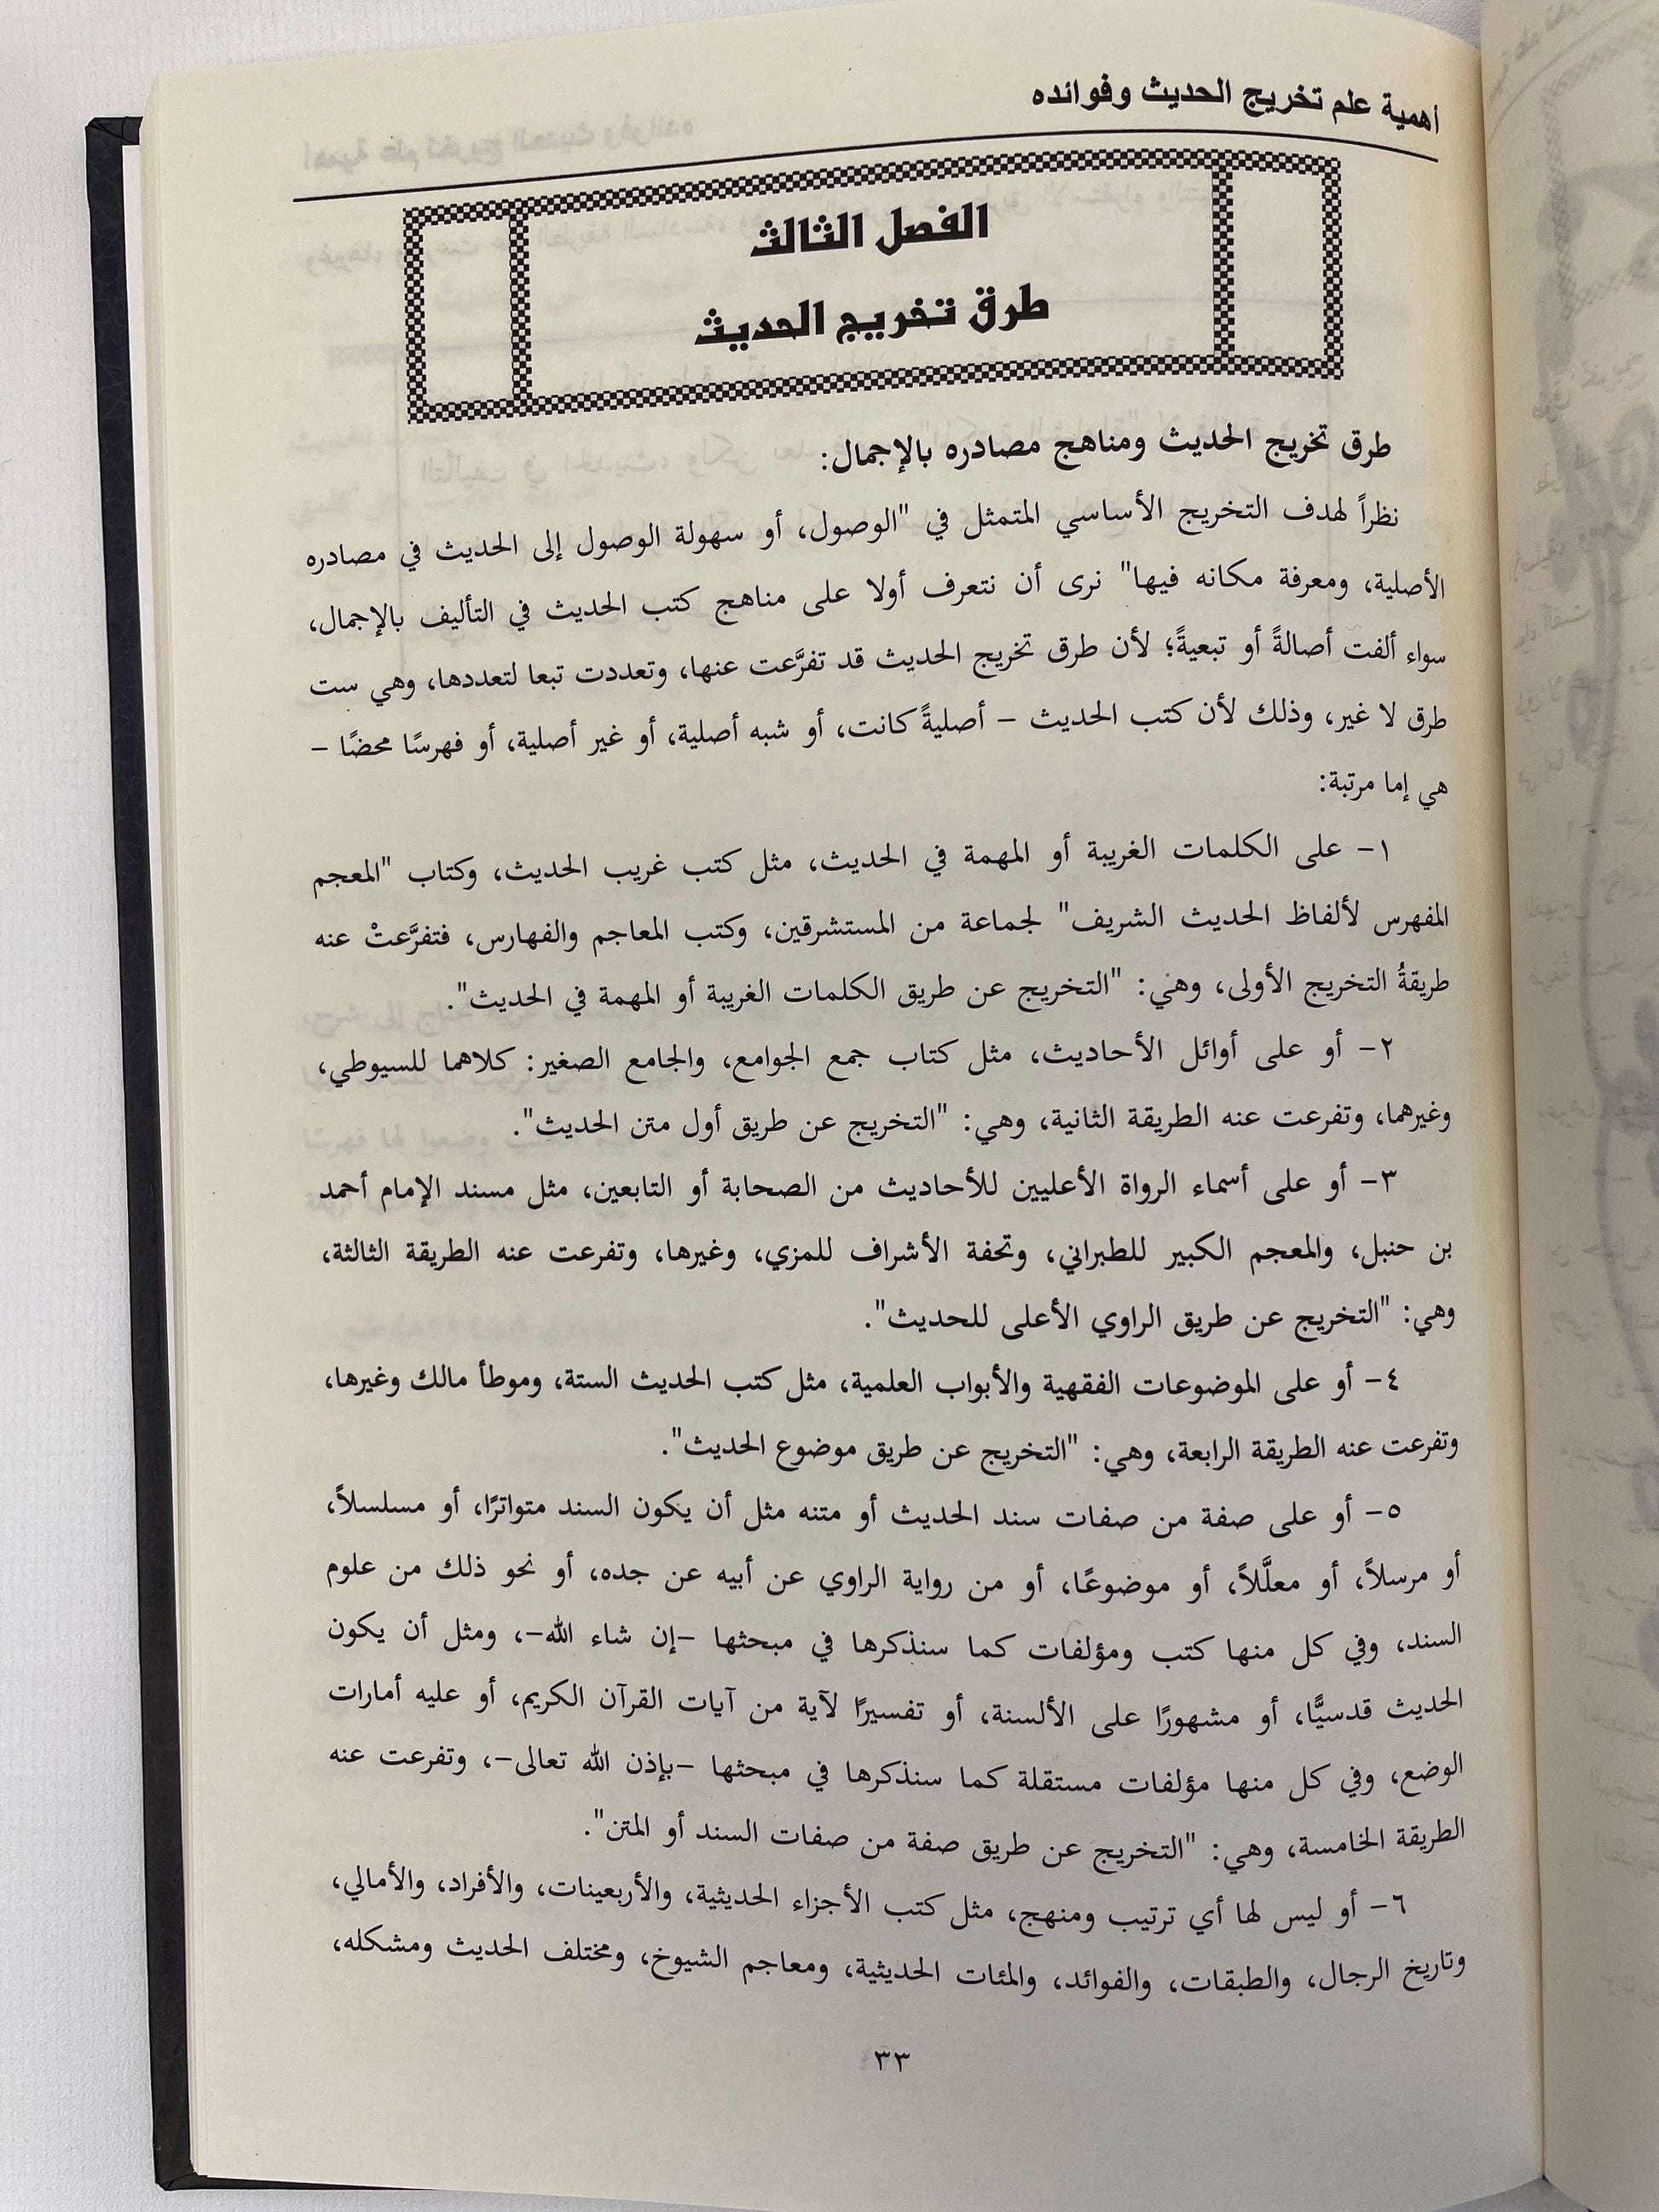 أهمية علم تخريج الحديث وفوائده
الفصل الثالث
طرق تخريج الحديث
طرق تخريج الحديث ومناهج مصادره بالإجمال:
نظراً لهدف التخريج الأساسي المتمثل في "الوصول، أو سهولة الوصول إلى الحديث في مصادره
الأصلية، ومعرفة مكانه فيها" نرى أن نتعرف أولا على مناهج كتب الحديث في التأليف بالإجمال،
سواء ألفت أصالةً أو تبعيةً؛ لأن طرق تخريج الحديث قد تفرَّعت عنها، وتعددت تبعا لتعددها، وهي ست
طرق لا غير، وذلك لأن كتب الحديث – أصليةً كانت، أو شبه أصلية، أو غير أصلية، أو فهرسًا محضًا –
هي إما مرتبة:
١– على الكلمات الغريبة أو المهمة في الحديث، مثل كتب غريب الحديث، وكتاب "المعجم
المفهرس لألفاظ الحديث الشريف" لجماعة من المستشرقين، وكتب المعاجم والفهارس، فتفرَّعتْ عنه
طريقةُ التخريج الأولى، وهي: "التخريج عن طريق الكلمات الغريبة أو المهمة في الحديث".
٢– أو على أوائل الأحاديث، مثل كتاب جمع الجوامع، والجامع الصغير: كلاهما للسيوطي،
وغيرهما، وتفرعت عنه الطريقة الثانية، وهي: "التخريج عن طريق أول متن الحديث".
٣– أو على أسماء الرواة الأعليين للأحاديث من الصحابة أو التابعين، مثل مسند الإمام أحمد
بن حنبل، والمعجم الكبير للطبراني، وتحفة الأشراف للمزي، وغيرها، وتفرعت عنه الطريقة الثالثة،
وهي: "التخريج عن طريق الراوي الأعلى للحديث".
٤– أو على الموضوعات الفقهية والأبواب العلمية، مثل كتب الحديث الستة، وموطأ مالك وغيرها،
وتفرعت عنه الطريقة الرابعة، وهي: "التخريج عن طريق موضوع الحديث".
٥– أو على صفة من صفات سند الحديث أو متنه مثل أن يكون السند متواترًا، أو مسلسلاً،
أو مرسلاً، أو معلَّلاً، أو موضوعًا، أو من رواية الراوي عن أبيه عن جده، أو نحو ذلك من علوم
السند، وفي كل منها كتب ومؤلفات كما سنذكرها في مبحثها –إن شاء الله–، ومثل أن يكون
الحديث قدسيًّا، أو مشهورًا على الألسنة، أو تفسيرًا لآية من آيات القرآن الكريم، أو عليه أمارات
الوضع، وفي كل منها مؤلفات مستقلة كما سنذكرها في مبحثها –بإذن الله تعالى–، وتفرعت عنه
الطريقة الخامسة، وهي: "التخريج عن طريق صفة من صفات السند أو المتن".
٦– أو ليس لها أي ترتيب ومنهج، مثل كتب الأجزاء الحديثية، والأربعينات، والأفراد، والأمالي،
وتاريخ الرجال، والطبقات، والفوائد، والمئات الحديثية، ومعاجم الشيوخ، ومختلف الحديث ومشكله،
٣٣